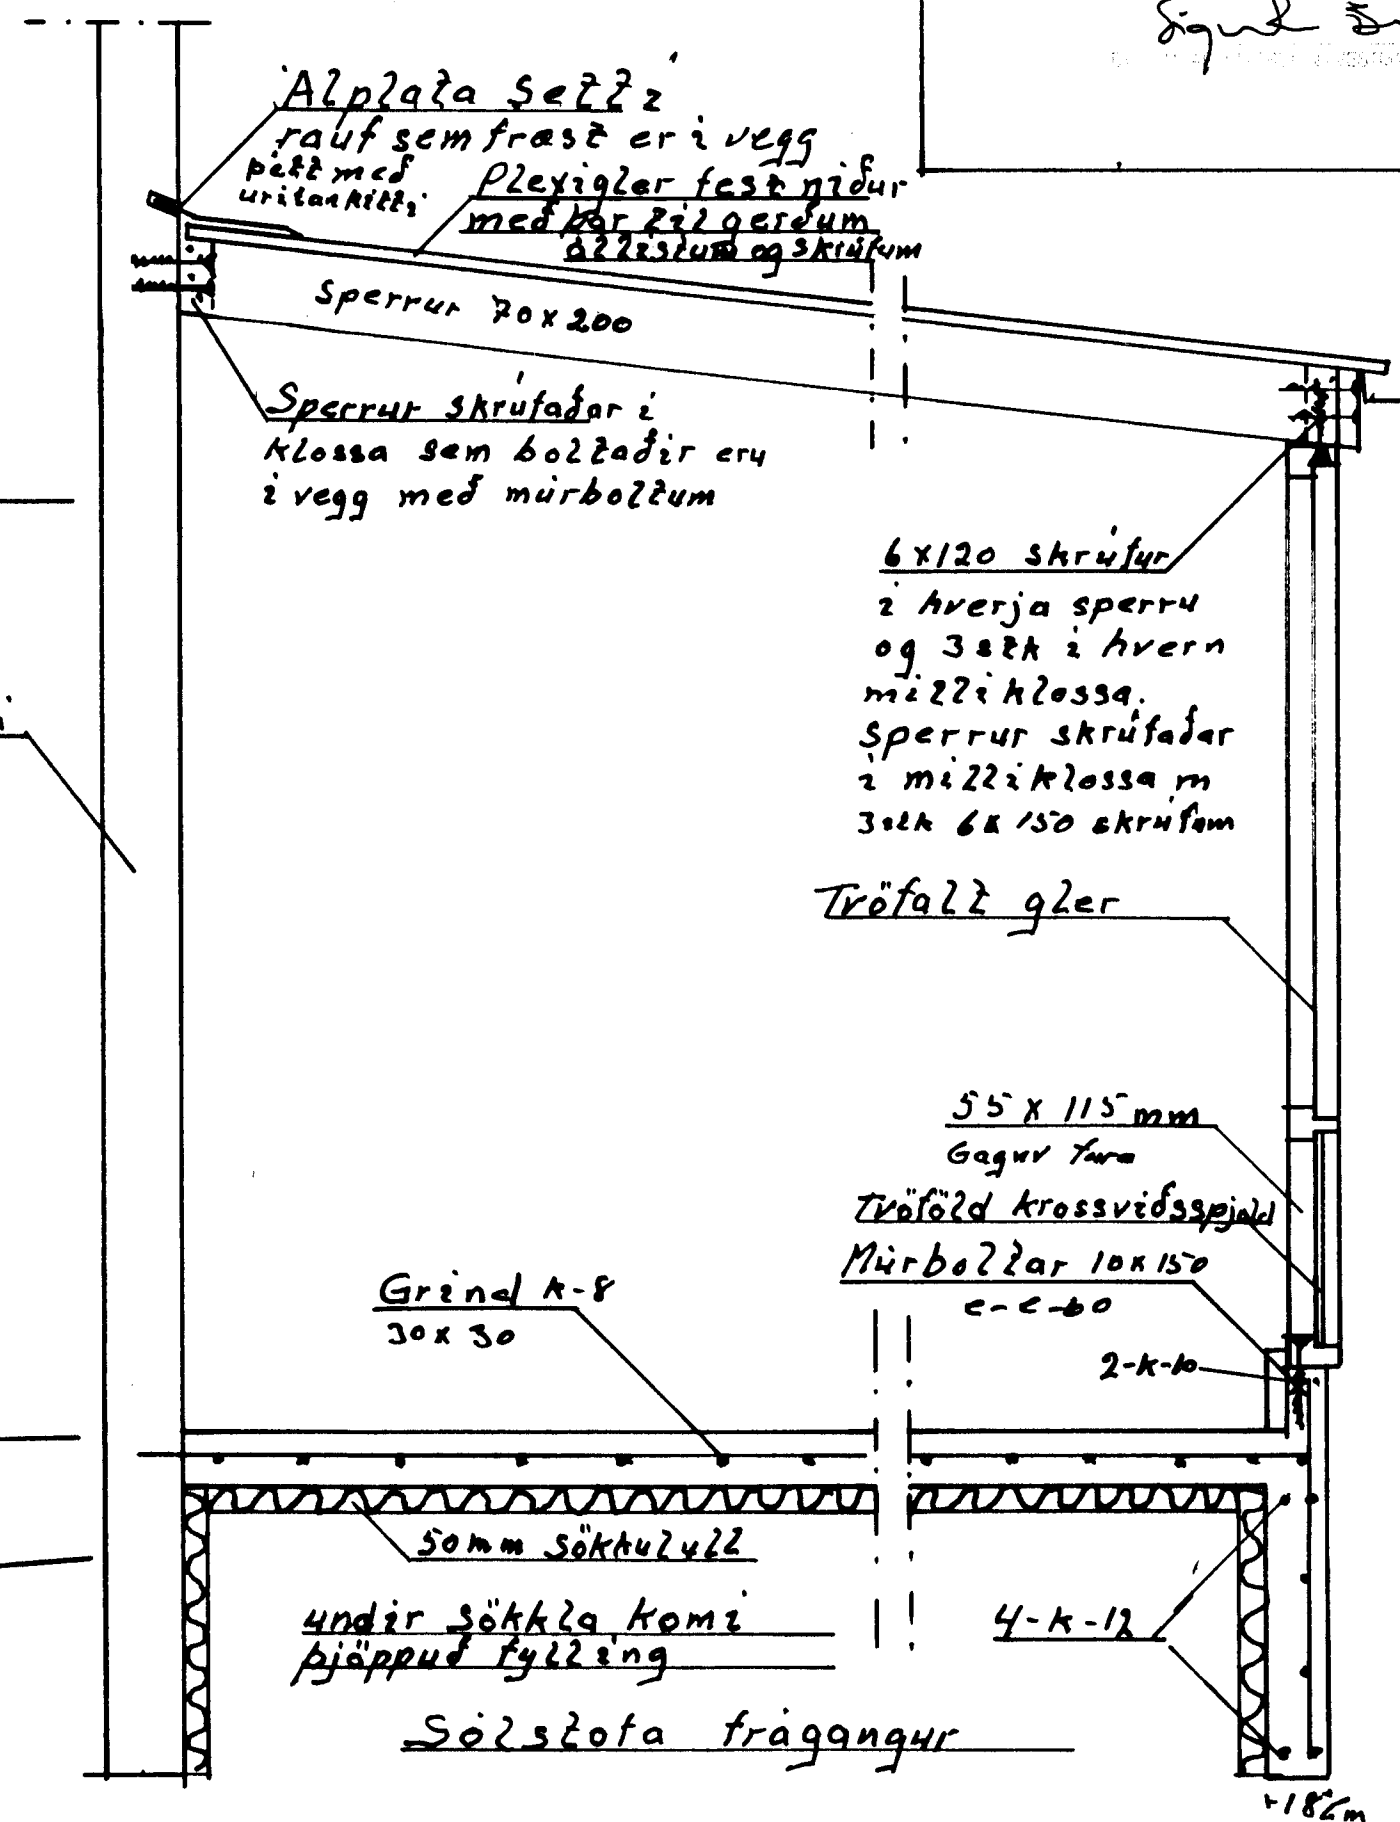 Álplata sett í
rauf sem fræst er í vegg
þétt með
uritankítti
Plexigler fest niður
með þar til gerðum
állistum og skrúfum
Sperrur 70x200
Sperrur skrúfaðar í
klossa sem boltaðir eru
í vegg með múrboltum
6x120 skrúfur
í hverja sperru
og 3stk í hvern
milliklossa.
Sperrur skrúfaðar
í milliklossa m
3stk 6x150 skrúfum
Tvöfalt gler
55 x 115 mm
Gagnv fura
Tvöföld krossviðsspjöld
Múrboltar 10x150
c-c-60
2-k-10
Grind k-8
30x30
50mm sökkulull
undir sökkla komi
þjöppuð fylling
4-k-12
Sólstofa frágangur